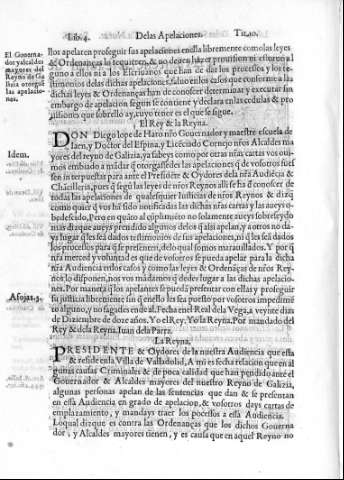 Lib. 4. De las Apelaciones. Tit. 10.
El Gouerna-
dor y alcaldes
mayores del
Reyno de Ga
lizia otorguē
las apelacio-
nes.
llos apelaren proseguir sus apelaciones en ella libremente como las leyes
& Ordenanças lo requieren, & no deuen hazer preuision ni estoruo al
guno a ellos ni a los Escriuanos que han de dar los processos y los tes-
timonios de las dichas apelaciones, saluo en los casos que conforme a las
dichas leyes & Ordenanças han de conocer determinar y executar sin
embargo de apelacion segun se contiene y declara en las cedulas & pro
uisiones que sobre ello ay, cuyo tenor es el que se sigue.
El Rey & la Reyna.
Idem.
DON Diego lope de Haro nr̃o Gouernador y maestre escuela de
Iaen, y Doctor del Espina, y Licēciado Cornejo nr̃os Alcaldes ma
yores del reyno de Galizia, ya sabeys como por otras nr̃as cartas vos oui-
mos embiado a mādar q̄ otorgassedes las apelaciones q̄ de vosotros fues
sen interpuestas para ante el Presidēte & Oydores dela nr̃a Audiēcia &
Chācilleria, pues q̄ segū las leyes de nr̃os Reynos alli se ha d̄ conoscer de
todas las apelaciones de qualesquier Iusticias de nr̃os Reynos & dizq̄
como quier q̄ vos hā sido notificadas las dichas nr̃as cartas y las aueys o-
bedescido, Pero en quāto al cūplimiēto no solamente aueys sobreseydo
mas dizque aueys prendido algunos delos q̄ assi apelan, y a otros no da-
ys lugar q̄ les seā dados testimonios de sus apelaciones, ni q̄ les seā dados
los processos para q̄ se presenten, delo qual somos marauillados. Y por q̄
nr̃a merced y voluntad es que de vosotros se pueda apelar para la dicha
nr̃a Audiencia en los casos y como las leyes & Ordenāças de nr̃os Rey-
nos lo disponen, nos vos mādamos q̄ dedes lugar a las dichas apelacio-
nes. Por manera q̄ los apelantes se pueda presentar con ellas y proseguir
Afojas. 3.
su justicia libremente sin q̄ en ello les sea puesto por vosotros impedimē
to alguno, y no fagades en de al. Fecha en el Real dela Vega, a veynte dias
de Diziembre de doze años. Yo el Rey. Yo la Reyna. Por mandado del
Rey & dela Reyna. Iuan dela Parra.
La Reyna.
PRESIDENTE & Oydores de la nuestra Audiencia que esta
& reside en la Villa de Valladolid, A mi es fecha relacion que en al
gunas causas Criminales & de poca calidad que han pendido ante el
Gouernador & Alcaldes mayores del nuestro Reyno de Galizia,
algunas personas apelan de las sentencias que dan & se presentan
en essa Audiencia en grado de apelacion, & vosotros days cartas de
emplazamiento, y mandays traer los processos a essa Audiencia.
Lo qual dizque es contra las Ordenanças que los dichos Gouerna
dor, y Alcaldes mayores tienen, y es causa que en aquel Reyno no